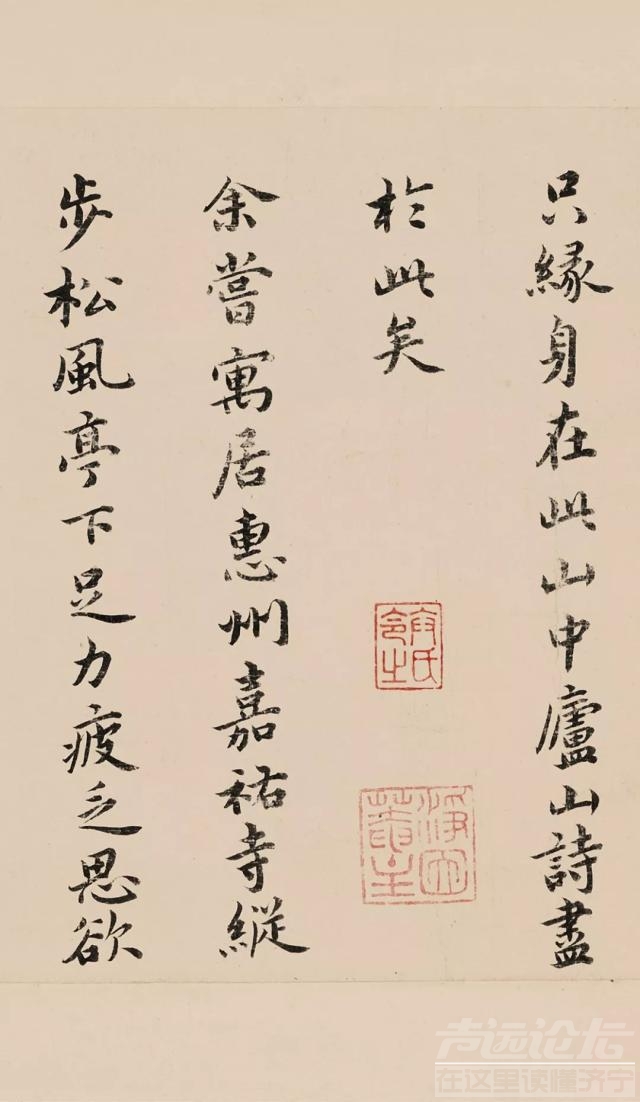 只緣身在此山中廬山詩盡
於此矣
余嘗寓居惠州嘉祐寺縱
步松風亭下足力疲乏思欲
声远论坛
在这里读懂济宁